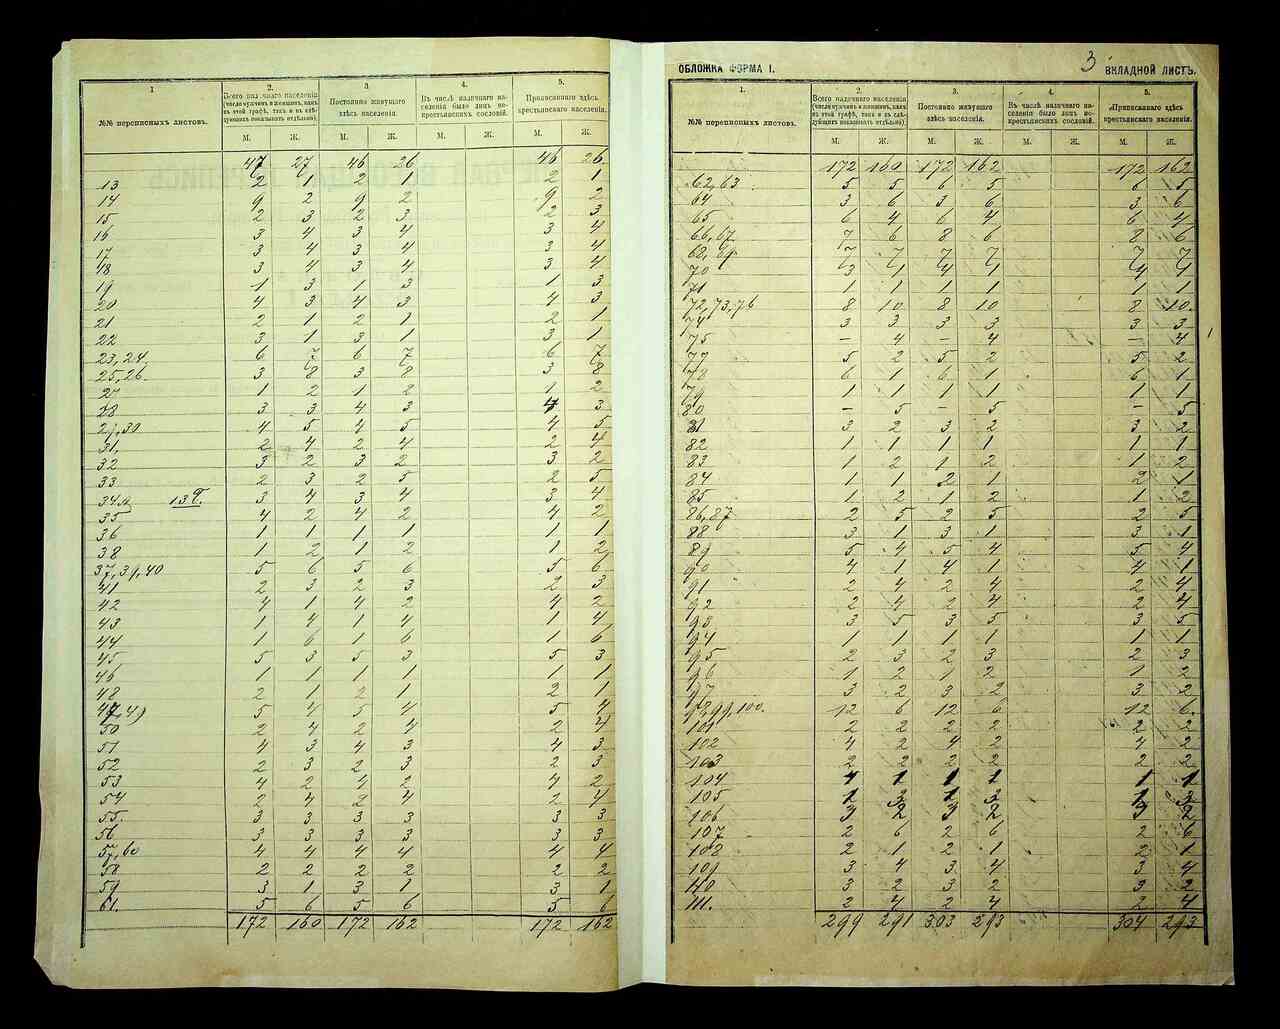 1
2.
3
4.
5.
№№ переписныхъ листовъ.
Всего наличнаго населенія (число мужчинъ и женщинъ, какъ въ этой графѣ, такъ и въ слѣдующихъ показывать отдѣльно).
Постоянно живущаго здѣсь населенія.
Въ числѣ наличнаго населенія было лицъ некрестьянскихъ сословій.
Приписаннаго здѣсь крестьянскаго населенія.
М. Ж. М. Ж. М. Ж. М. Ж.
47 27 46 26 46 26
13 2 1 2 1 2 1
14 9 2 9 2 9 2
15 2 3 2 3 2 3
16 3 4 3 4 3 4
17 3 4 3 4 3 4
18 3 4 3 4 3 4
19 1 3 1 3 1 3
20 4 3 4 3 4 3
21 2 1 2 1 2 1
22 3 1 3 1 3 1
23,24 6 7 6 7 6 7
25,26. 3 8 3 8 3 8
27 1 2 1 2 1 2
28 3 3 4 3 4 3
29,30 4 5 4 5 4 5
31. 2 4 2 4 2 4
32 3 2 3 2 3 2
33 2 3 2 5 2 5
34 3 4 3 4 3 4
35 4 2 4 2 4 2
36 1 1 1 1 1 1
38 1 2 1 2 1 2
37,39,40 5 6 5 6 5 6
41 2 3 2 3 2 3
42 4 1 4 2 4 2
43 1 4 1 4 1 4
44 6 1 6 1 6
45 5 3 5 3 5 3
46 1 1 1 1 1 1
48 2 1 2 1 2 1
47,49 5 4 5 4 5 4
50 2 4 2 4 2 4
51 4 3 4 3 4 3
52 2 3 2 3 2 3
53 4 2 4 2 4 2
54 2 4 2 4 2 4
55. 3 3 3 3 3 3
56 3 3 3 3 3 3
57,60 4 4 4 4 4 4
58 2 2 2 2 2 2
59 3 1 3 1 3 1
61. 5 6 5 6 5 6
172 160 172 162 172 162
ОБЛОЖКА ФОРМА I.
3
ВКЛАДНОЙ ЛИСТЪ.
1.
2.
3.
4.
5.
№№ переписныхъ листовъ.
Всего наличнаго населенія (число мужчинъ и женщинъ, какъ въ этой графѣ, такъ и въ слѣдующихъ показывать отдѣльно).
Постоянно живущаго здѣсь населенія.
Въ числѣ наличнаго населенія было лицъ некрестьянскихъ сословій.
Приписаннаго здѣсь крестьянскаго населенія.
М. Ж. М. Ж. М. Ж. М. Ж.
172 160 172 162 172 162
62,63. 5 5 6 5 6 5
64 3 6 3 6 3 6
65 6 4 6 4 6 4
66,67 7 6 8 6 8 6
68,69 7 7 7 7 7 7
70 3 1 4 1 4 1
71 1 1 1 1 1 1
72,73,76 8 10 8 10 8 10.
74 3 3 3 3 3 3
75 – 4 – 4 – 4
77 5 2 5 2 5 2
78 6 1 6 1 6 1
79 1 1 1 1 1 1
80 – 5 – 5 – 5
81 3 2 3 2 3 2
82 1 1 1 1 1 1
83 1 2 1 2 1 2
84 1 1 2 1 2 1
85 1 2 1 2 1 2
86,87 2 5 2 5 2 5
88 3 1 3 1 3 1
89 5 4 5 4 5 4
90 4 1 4 1 4 1
91 2 4 2 4 2 4
92 2 4 2 4 2 4
93 3 5 3 5 3 5
94 1 1 1 1 1 1
95 2 3 2 3 2 3
96 1 2 1 2 1 2
97 3 2 3 2 3 2
98,99,100. 12 6 12 6 12 6.
101 2 2 2 2 2 2
102 4 2 4 2 4 2
103 2 2 2 2 2 2
104 1 1 1 1 1
105 1 3 1 3 1 3
106 3 2 3 2 3 2
107 2 6 2 6 2 6
108 2 1 2 1 2 1
109 3 4 3 4 3 4
110 3 2 3 2 3 2
111. 2 4 2 4 2 4
299 291 303 293 304 293